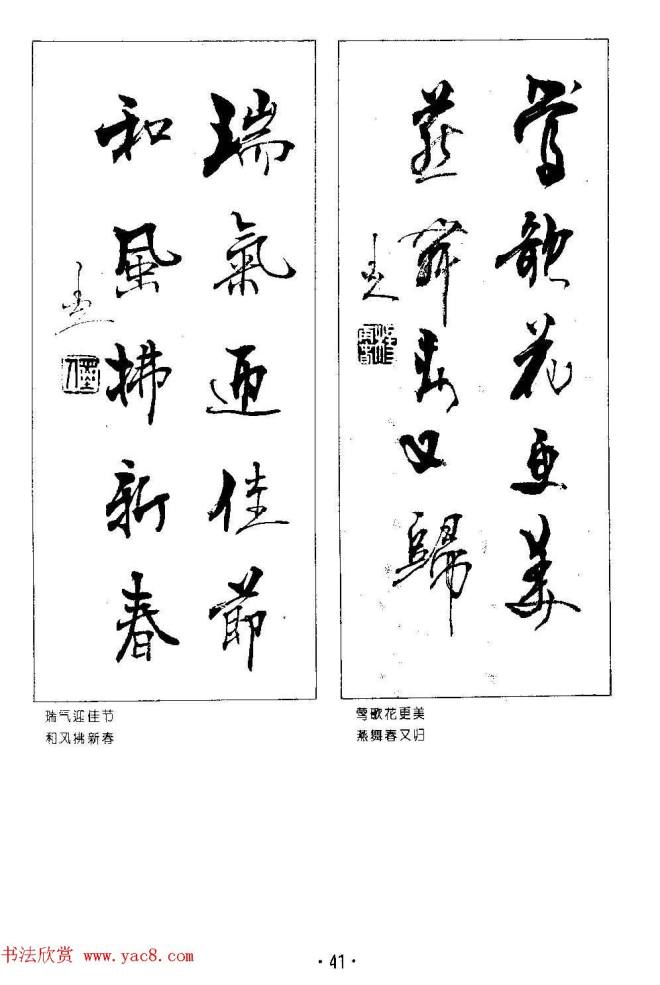 鶯歌花更美
燕舞春又歸
瑞氣迎佳節
和風拂新春
莺歌花更美
燕舞春又归
瑞气迎佳节
和风拂新春
·41·
书法欣赏 www.yac8.com